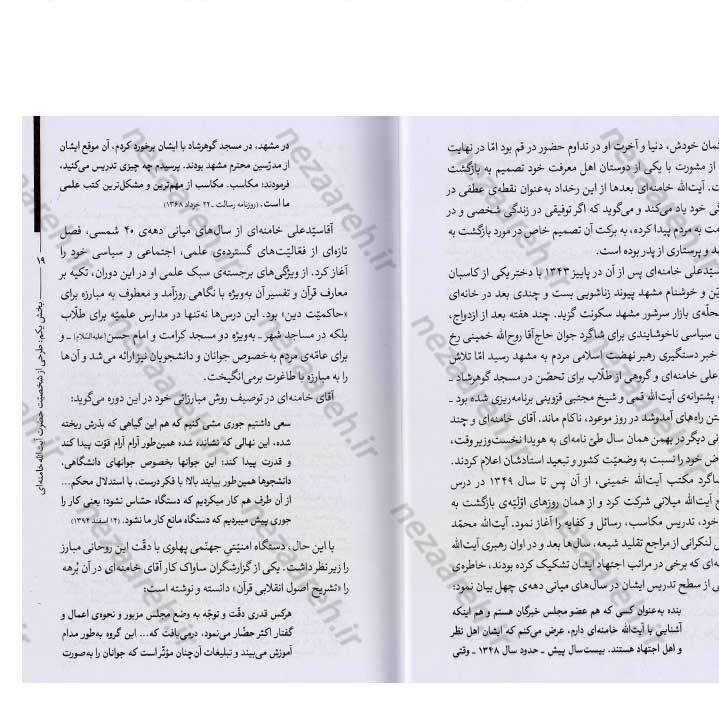 ئمان خودش، دنیا و آخرت او در تداوم حضور در قم بود امّا در نهایت
از مشورت با یکی از دوستان اهل معرفت خود تصمیم به بازگشت
ت. آیت‌الله خامنه‌ای بعدها از این رخداد به‌عنوان نقطه‌ی عطفی در
گی خود یاد می‌کند و می‌گوید که اگر توفیقی در زندگی شخصی و در
مت به مردم پیدا کرده، به برکت آن تصمیم خاص در مورد بازگشت به
هد و پرستاری از پدر بوده است.
سیّدعلی خامنه‌ای پس از آن در پاییز ۱۳۴۳ با دختر یکی از کاسبان
یّن و خوشنام مشهد پیوند زناشویی بست و چندی بعد در خانه‌ای
محلّه‌ی بازار سرشور مشهد سکونت گزید. چند هفته بعد از ازدواج،
ی سیاسی ناخوشایندی برای شاگرد جوان حاج‌آقا روح‌الله خمینی رخ
خبر دستگیری رهبر نهضت اسلامی مردم به مشهد رسید امّا تلاش
علی خامنه‌ای و گروهی از طلّاب برای تحصّن در مسجد گوهرشاد ـ
ه پشتوانه‌ی آیت‌الله قمی و شیخ مجتبی قزوینی برنامه‌ریزی شده بود ـ
ستن راه‌های آمدوشد در روز موعود، ناکام ماند. آقای خامنه‌ای و چند
انی دیگر در بهمن همان سال طیّ نامه‌ای به هویدا نخست‌وزیر وقت،
اض خود را نسبت به وضعیّت کشور و تبعید استادشان اعلام کردند.
شاگرد مکتب آیت‌الله خمینی، از آن پس تا سال ۱۳۴۹ در درس
ج آیت‌الله میلانی شرکت کرد و از همان روزهای اوّلیّه‌ی بازگشت به
خود، تدریس مکاسب، رسائل و کفایه را آغاز نمود. آیت‌الله محمّد
ل لنکرانی از مراجع تقلید شیعه، سال‌ها بعد و در اوان رهبری آیت‌الله
ه‌ای که برخی در مراتب اجتهاد ایشان تشکیک کرده بودند، خاطره‌ی
ی از سطح تدریس ایشان در سال‌های میانی دهه‌ی چهل بیان نمود:
بنده به‌عنوان کسی که هم عضو مجلس خبرگان هستم و هم اینکه
آشنایی با آیت‌الله خامنه‌ای دارم، عرض می‌کنم که ایشان اهل نظر
و اهل اجتهاد هستند. بیست‌سال پیش ـ حدود سال ۱۳۴۸ ـ وقتی
در مشهد، در مسجد گوهرشاد با ایشان برخورد کردم، آن موقع ایشان
از مدرّسین محترم مشهد بودند. پرسیدم چه چیزی تدریس می‌کنید،
فرمودند: مکاسب. مکاسب از مهم‌ترین و مشکل‌ترین کتب علمی
ما است. (روزنامه رسالت ـ ۲۲ خرداد ۱۳۶۸)
آقاسیّدعلی خامنه‌ای از سال‌های میانی دهه‌ی ۴۰ شمسی، فصل
تازه‌ای از فعالیّت‌های گسترده‌ی علمی، اجتماعی و سیاسی خود را
آغاز کرد. از ویژگی‌های برجسته‌ی سبک علمی او در این دوران، تکیه بر
معارف قرآن و تفسیر آن به‌ویژه با نگاهی روزآمد و معطوف به مبارزه برای
«حاکمیّت دین» بود. این درس‌ها نه‌تنها در مدارس علمیّه برای طلّاب
بلکه در مساجد شهر ـ به‌ویژه دو مسجد کرامت و امام حسن (علیه‌السّلام) ـ و
برای عامّه‌ی مردم به‌خصوص جوانان و دانشجویان نیز ارائه می‌شد و آن‌ها
را به مبارزه با طاغوت برمی‌انگیخت.
آقای خامنه‌ای در توصیف روش مبارزاتی خود در این دوره می‌گوید:
سعی داشتیم جوری مشی کنیم که هم این گیاهی که بذرش ریخته
شده، این نهالی که نشانده شده همین‌طور آرام آرام قوّت پیدا کند
و قدرت پیدا کند؛ این جوانها بخصوص جوانهای دانشگاهی،
دانشجوها همین‌طور بیایند بالا؛ با فکر درست، با استدلال محکم...
از آن طرف هم کار میکردیم که دستگاه حسّاس نشود؛ یعنی کار را
جوری پیش میبردیم که دستگاه مانع کار ما نشود. (۱۴ اسفند ۱۳۹۴)
با این حال، دستگاه امنیّتی جهنّمی پهلوی با دقّت این روحانی مبارز
را زیر نظر داشت. یکی از گزارشگران ساواک کار آقای خامنه‌ای در آن بُرهه
را «تشریح اصول انقلابی قرآن» دانسته و نوشته است:
هرکس قدری دقّت و توجّه به وضع مجلس مزبور و نحوه‌ی اعمال و
گفتار اکثر حضّار می‌نمود، درمی‌یافت که... این گروه به‌طور مدام
آموزش می‌بیند و تبلیغات آن‌چنان مؤثّر است که جوانان را به‌صورت
بخش یکم: طرحی از شخصیّت حضرت آیت‌الله خامنه‌ای
nezaareh.ir
nezaareh.ir
nezaareh.ir
nezaareh.ir
nezaareh.ir
nezaareh.ir